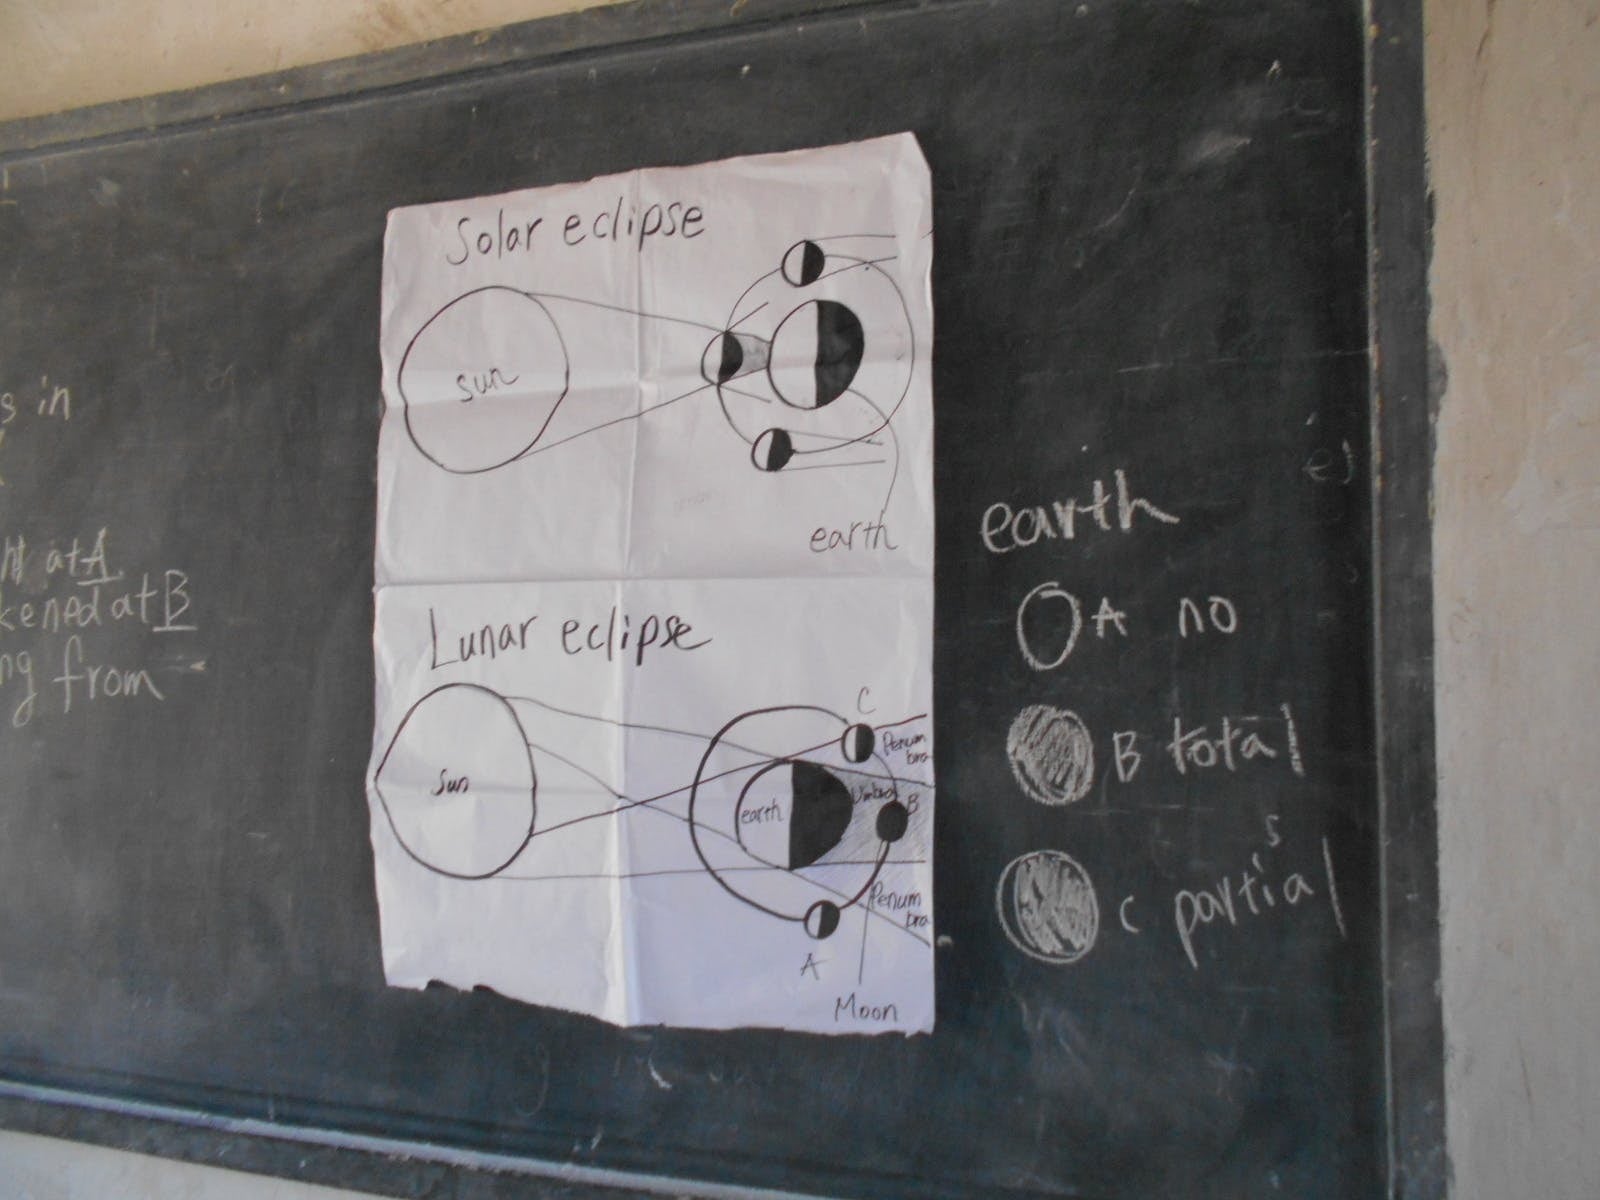 s in
at A
kened at B
ng from
Solar eclipse
sun
earth
Lunar eclipse
Sun
earth
C
Penum
bra
Umbra
B
Penum
bra
A
Moon
earth
A no
B total
C partial